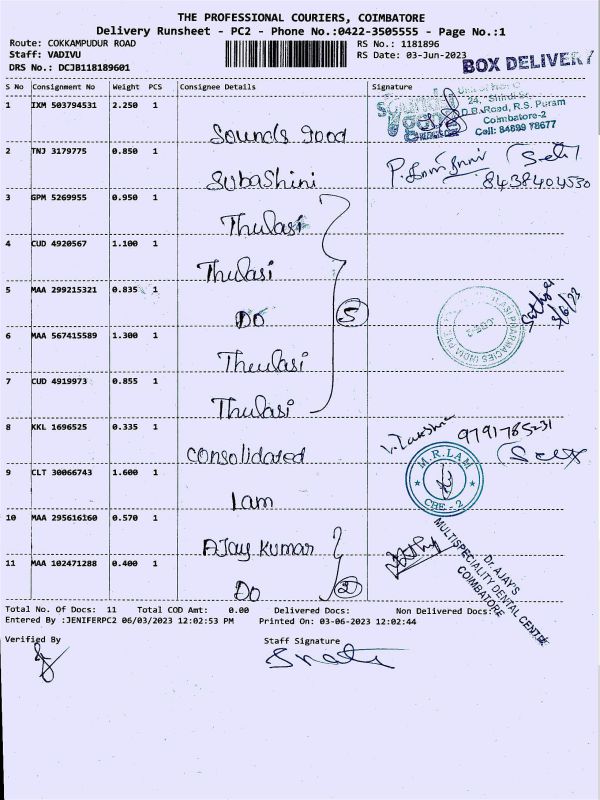 THE PROFESSIONAL COURIERS, COIMBATORE
Delivery Runsheet - PC2 - Phone No.:0422-3505555 - Page No.:1
Route: COKKAMPUDUR ROAD
RS No.: 1181896
Staff: VADIVU
RS Date: 03-Jun-2023
DRS No.: DCJB118189601
BOX DELIVERY
S No Consignment No Weight PCS Consignee Details Signature
1 IXM 503794531 2.250 1
24,
D.B.Road, R.S. Puram
Coimbatore-2
Sounds good
2 TNJ 3179775 0.850 1
Subashini
8438404530
3 GPM 5269955 0.950 1
Thulasi
4 CUD 4920567 1.100 1
Thulasi
5 MAA 299215321 0.835 1
DO 5
6 MAA 567415589 1.300 1
Theulasi
7 CUD 4919973 0.855 1
Thulasi
8 KKL 1696525 0.335 1
consolidated
9791785231
9 CLT 30066743 1.600 1
Lam
M.R.LAM
CHE - 2
10 MAA 295616160 0.570 1
AJay kumar
11 MAA 102471288 0.400 1
Do 2
Dr. AJAY'S
MULTISPECIALITY DENTAL CENTRE
COIMBATORE
Total No. Of Docs: 11 Total COD Amt: 0.00 Delivered Docs: Non Delivered Docs:
Entered By :JENIFERPC2 06/03/2023 12:02:53 PM Printed On: 03-06-2023 12:02:44
Verified By Staff Signature